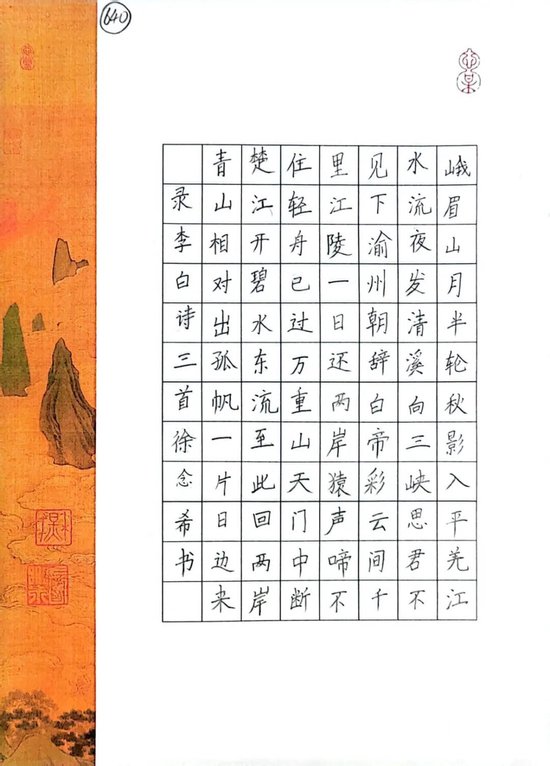 640
峨眉山月半轮秋影入平羌江
水流夜发清溪向三峡思君不
见下渝州朝辞白帝彩云间千
里江陵一日还两岸猿声啼不
住轻舟已过万重山天门中断
楚江开碧水东流至此回两岸
青山相对出孤帆一片日边来
录李白诗三首徐念希书